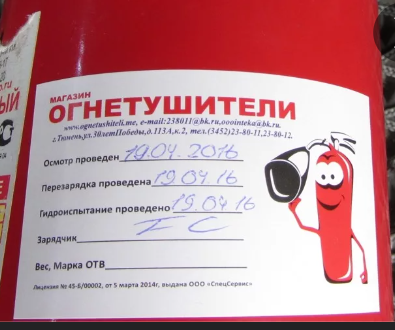 МАГАЗИН
ОГНЕТУШИТЕЛИ
www.ognetushiteli.me, e-mail:238011@bk.ru,ooointeka@bk.ru.
г.Тюмень,ул.30летПобеды,д.113А,к.2, тел.(3452)23-80-11,23-80-12.
Осмотр проведен 19.04.2016
Перезарядка проведена 19.04.16
Гидроиспытание проведено 19.04.16
Зарядчик
Вес, Марка ОТВ
Лицензия № 45-Б/00002, от 5 марта 2014г, выдана ООО «СпецСервис»